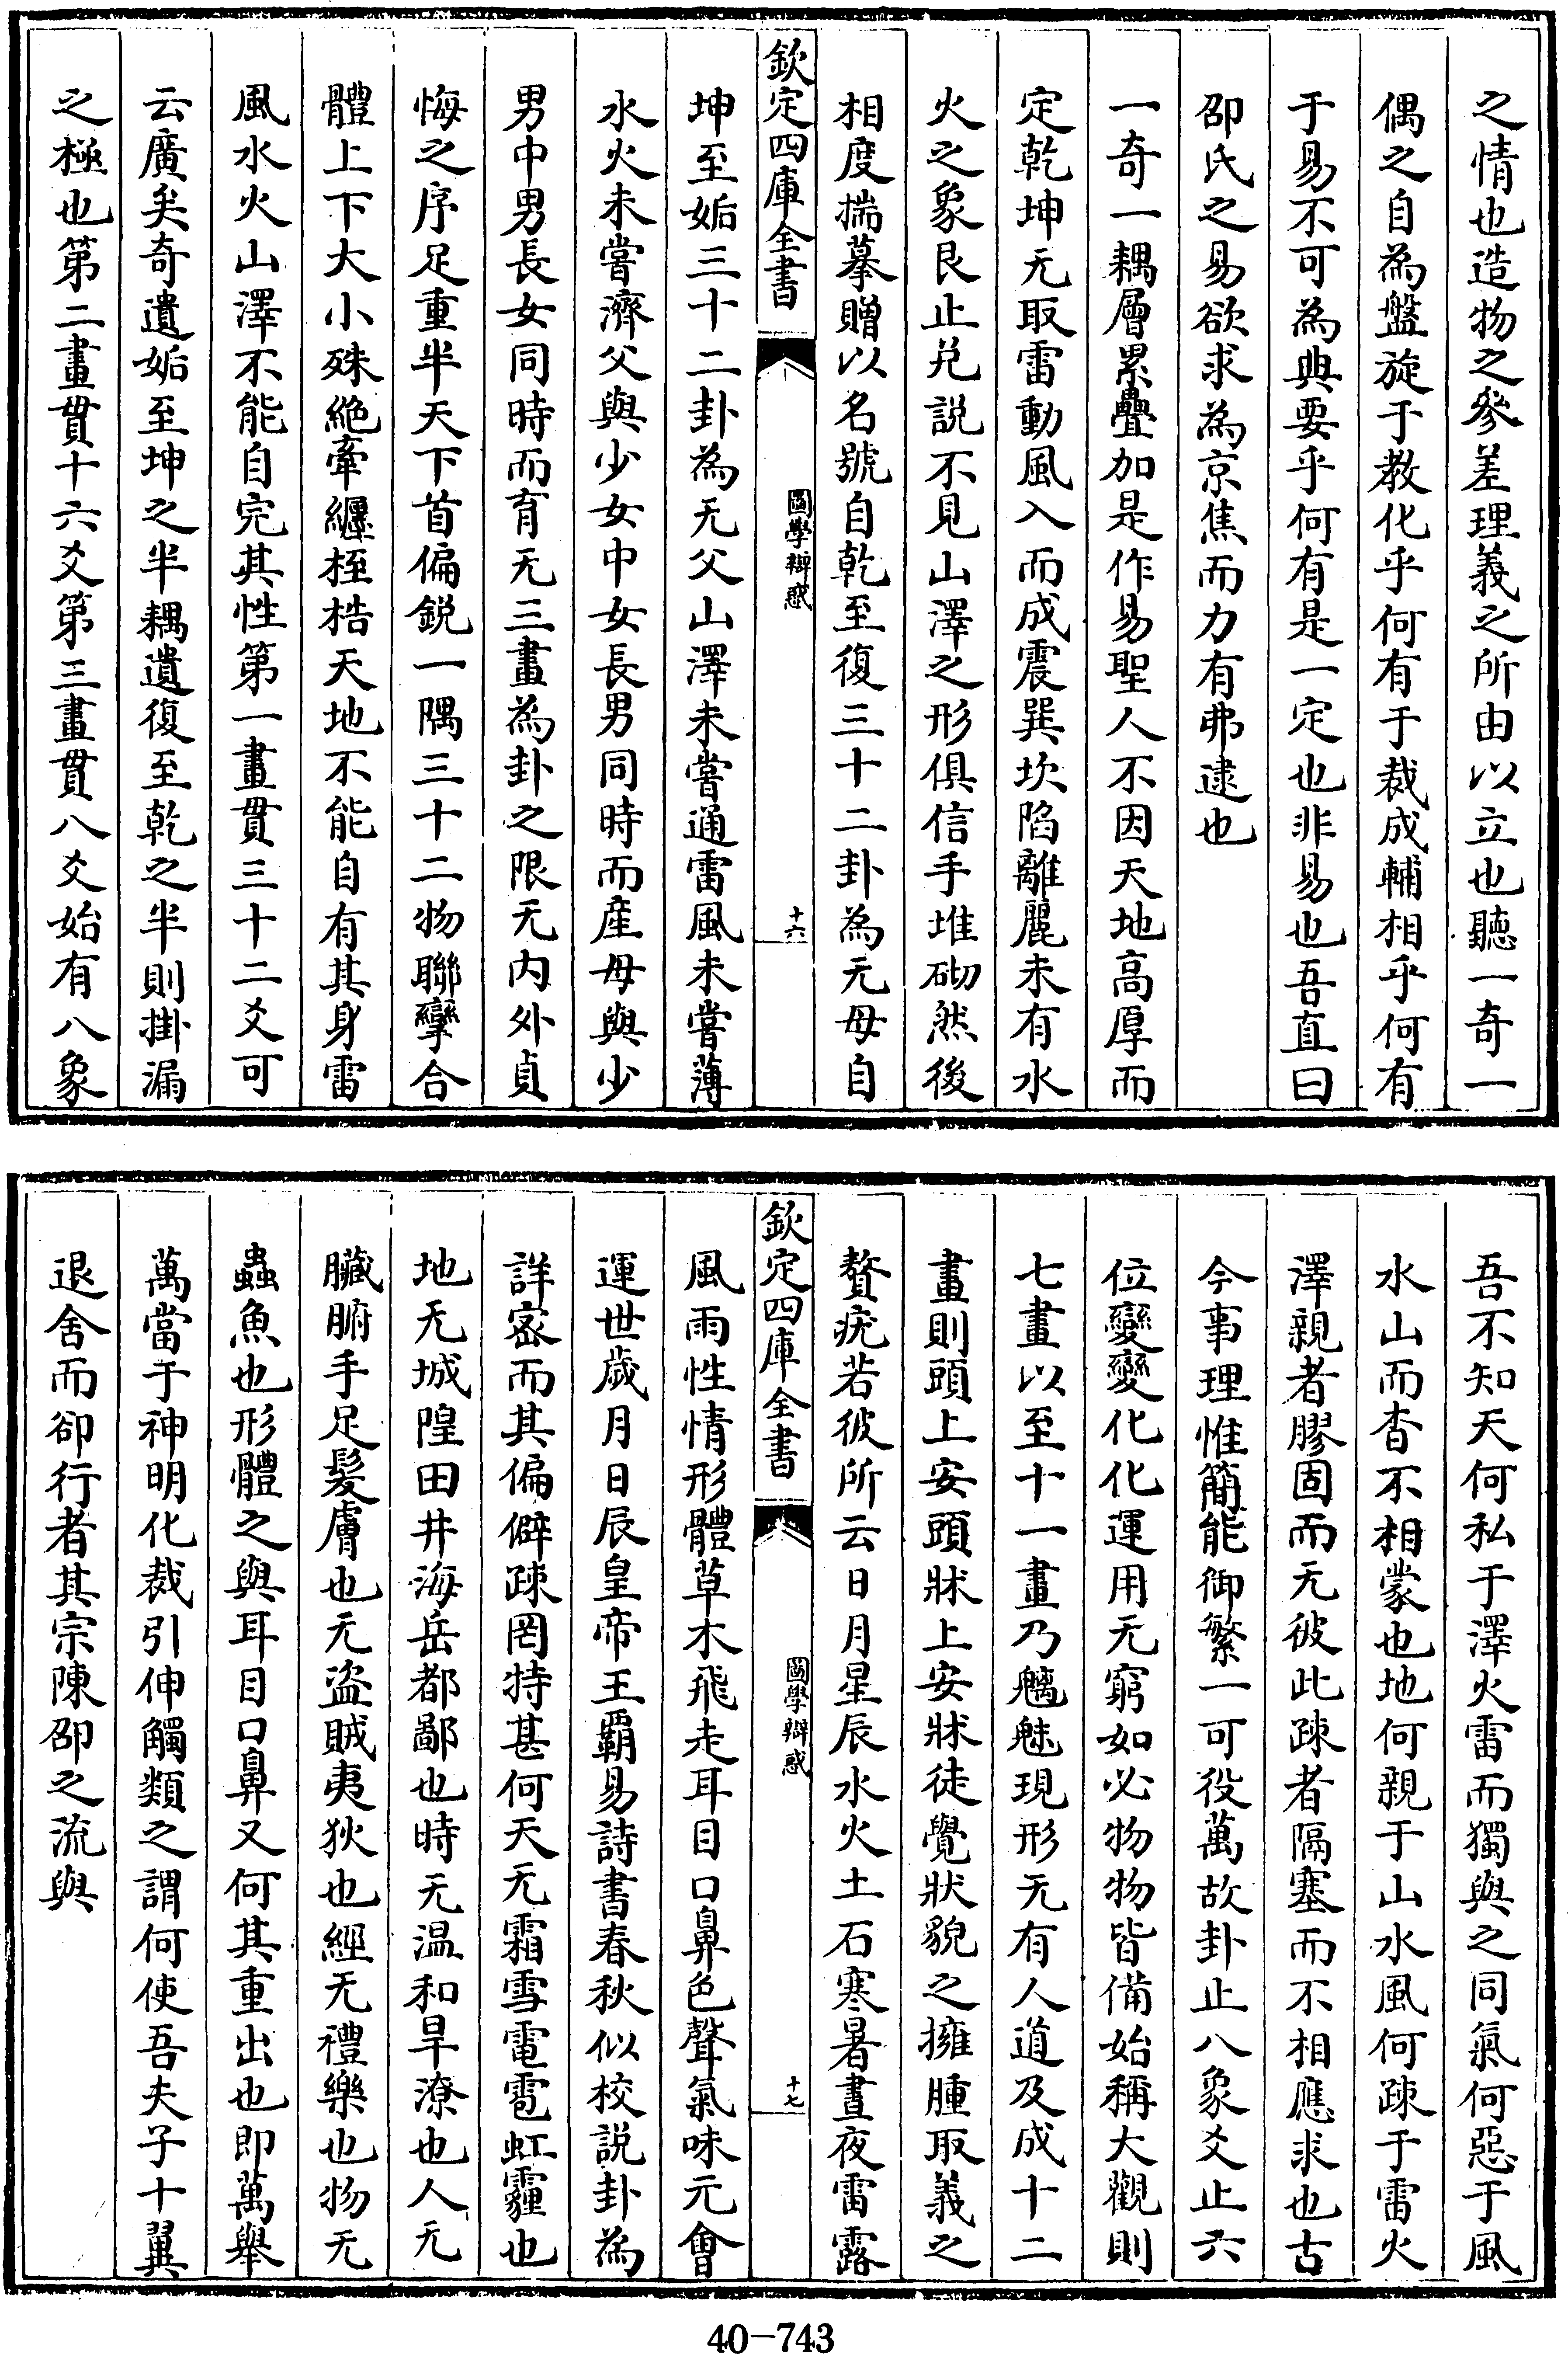 之情也造物之參差理義之所由以立也聽一奇一
偶之自為盤旋于教化乎何有于裁成輔相乎何有
于易不可為典要乎何有是一定也非易也吾直曰
邵氏之易欲求為京焦而力有弗逮也
一奇一耦層累疊加是作易聖人不因天地高厚而
定乾坤无取雷動風入而成震巽坎陷離麗未有水
火之象艮止兑説不見山澤之形俱信手堆砌然後
相度揣摹贈以名號自乾至復三十二卦為无母自
欽定四庫全書
圖學辯惑
十六
坤至姤三十二卦為无父山澤未嘗通雷風未嘗薄
水火未嘗濟父與少女中女長男同時而産母與少
男中男長女同時而育无三畫為卦之限无内外貞
悔之序足重半天下首偏鋭一隅三十二物聯孿合
體上下大小殊絶牽纒桎梏天地不能自有其身雷
風水火山澤不能自完其性第一畫貫三十二爻可
云廣矣奇遺姤至坤之半耦遺復至乾之半則掛漏
之極也第二畫貫十六爻第三畫貫八爻始有八象
吾不知天何私于澤火雷而獨與之同氣何惡于風
水山而杳不相蒙也地何親于山水風何疎于雷火
澤親者膠固而无彼此疎者隔塞而不相應求也古
今事理惟簡能御繁一可役萬故卦止八象爻止六
位變變化化運用无窮如必物物皆備始稱大觀則
七畫以至十一畫乃魑魅現形无有人道及成十二
畫則頭上安頭牀上安牀徒覺狀貌之擁腫取義之
贅疣若彼所云日月星辰水火土石寒暑晝夜雷露
欽定四庫全書
圖學辯惑
十七
風雨性情形體草木飛走耳目口鼻色聲氣味元會
運世歲月日辰皇帝王霸易詩書春秋似校説卦為
詳宻而其偏僻疎罔特甚何天无霜雪電雹虹霾也
地无城隍田井海岳都鄙也時无温和旱潦也人无
臟腑手足髮膚也无盜賊夷狄也經无禮樂也物无
蟲魚也形體之與耳目口鼻又何其重出也即萬舉
萬當于神明化裁引伸觸類之謂何使吾夫子十翼
退舍而卻行者其宗陳邵之流與
40-743